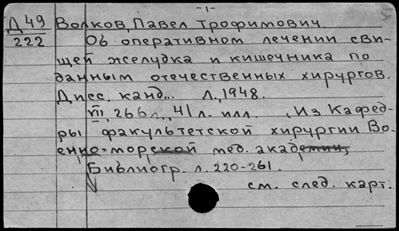 -1-
Д 49 Волков, Павел Трофимович
222 Об оперативном лечении сви-
щей желудка и кишечника по
данным отечественных хирургов.
Дисс. канд... Л., 1948.
VII, 266 л., 41 л. илл. , Из Кафед-
ры факультетской хирургии Во-
енно-морской мед. академии,
Библиогр. л. 220-261.
см. след. карт.